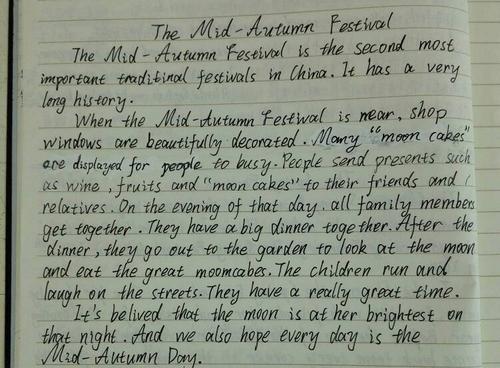 The Mid-Autumn Festival
The Mid-Autumn Festival is the second most
important traditinal festivals in China. It has a very
long history.
When the Mid-Autumn Festival is near, shop
windows are beautifully decorated. Many "moon cakes"
are displayed for people to busy. People send presents such
as wine, fruits and "moon cakes" to their friends and
relatives. On the evening of that day. all family members
get together. They have a big dinner together. After the
dinner, they go out to the garden to look at the moon
and eat the great mooncabes. The children run and
laugh on the streets. They have a really great time.
It's belived that the moon is at her brightest on
that night. And we also hope every day is the
Mid-Autumn Day.